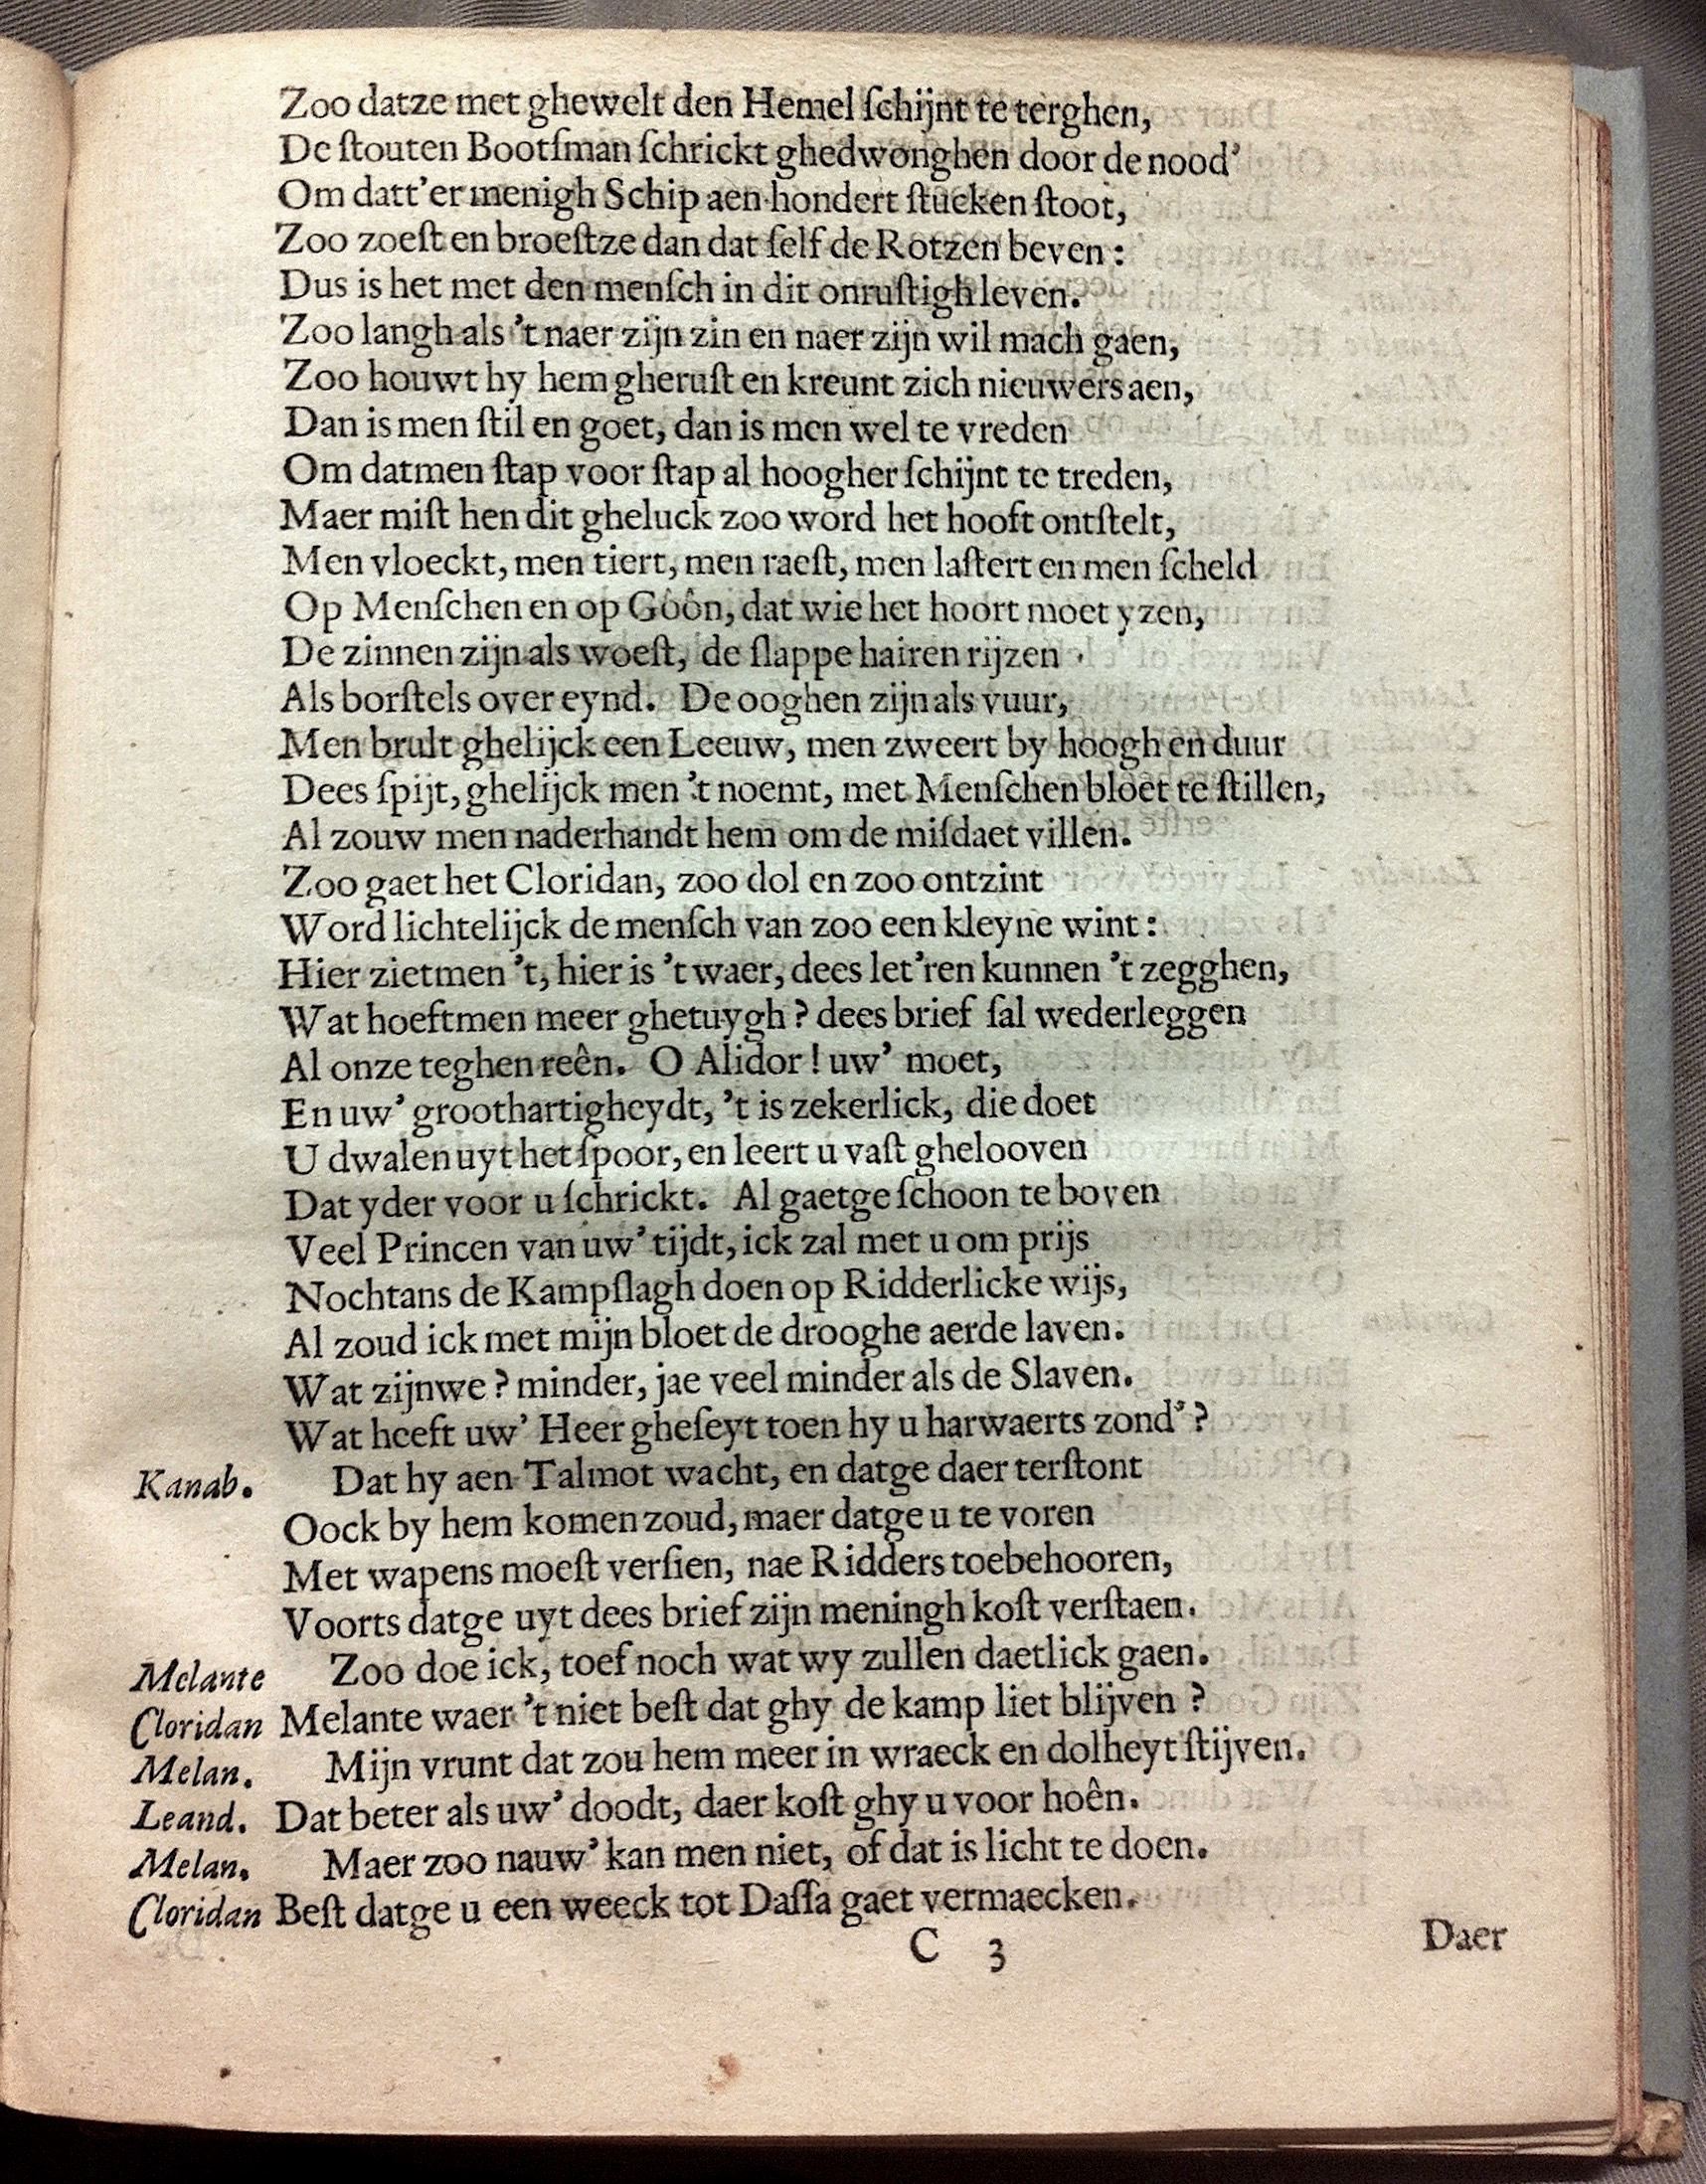 Zoo datze met ghewelt den Hemel ſchijnt te terghen,
De ſtouten Bootſman ſchrickt ghedwonghen door de nood’
Om datt’er menigh Schip aen hondert ſtucken ſtoot,
Zoo zoeſt en broeſtze dan dat ſelf de Rotzen beven:
Dus is het met den menſch in dit onruſtigh leven.
Zoo langh als ’t naer zijn zin en naer zijn wil mach gaen,
Zoo houwt hy hem gheruſt en kreunt zich nieuwers aen,
Dan is men ſtil en goet, dan is men wel te vreden
Om datmen ſtap voor ſtap al hoogher ſchijnt te treden,
Maer miſt hen dit gheluck zoo word het hooft ontſtelt,
Men vloeckt, men tiert, men raeſt, men laſtert en men ſcheld
Op Menſchen en op Goôn, dat wie het hoort moet yzen,
De zinnen zijn als woeſt, de ſlappe hairen rijzen
Als borſtels over eynd. De ooghen zijn als vuur,
Men brult ghelijck een Leeuw, men zweert by hoogh en duur
Dees ſpijt, ghelijck men ’t noemt, met Menſchen bloet te ſtillen,
Al zouw men naderhandt hem om de miſdaet villen.
Zoo gaet het Cloridan, zoo dol en zoo ontzint
Word lichtelijck de menſch van zoo een kleyne wint:
Hier zietmen ’t, hier is ’t waer, dees let’ren kunnen ’t zegghen,
Wat hoeftmen meer ghetuygh? dees brief ſal wederleggen
Al onze teghen reên. O Alidor! uw’ moet,
En uw’ groothartigheydt, ’t is zekerlick, die doet
U dwalen uyt het ſpoor, en leert u vaſt ghelooven
Dat yder voor u ſchrickt. Al gaetge ſchoon te boven
Veel Princen van uw’ tijdt, ick zal met u om prijs
Nochtans de Kampſlagh doen op Ridderlicke wijs,
Al zoud ick met mijn bloet de drooghe aerde laven.
Wat zijnwe? minder, jae veel minder als de Slaven.
Wat heeft uw’ Heer gheſeyt toen hy u harwaerts zond’?
Kanab. Dat hy aen Talmot wacht, en datge daer terſtont
Oock by hem komen zoud, maer datge u te voren
Met wapens moeſt verſien, nae Ridders toebehooren,
Voorts datge uyt dees brief zijn meningh koſt verſtaen.
Melante Zoo doe ick, toef noch wat wy zullen daetlick gaen.
Cloridan Melante waer ’t niet beſt dat ghy de kamp liet blijven?
Melan. Mijn vrunt dat zou hem meer in wraeck en dolheyt ſtijven.
Leand. Dat beter als uw’ doodt, daer koſt ghy u voor hoên.
Melan. Maer zoo nauw’ kan men niet, of dat is licht te doen.
Cloridan Beſt datge u een weeck tot Daſſa gaet vermaecken.
C 3 Daer